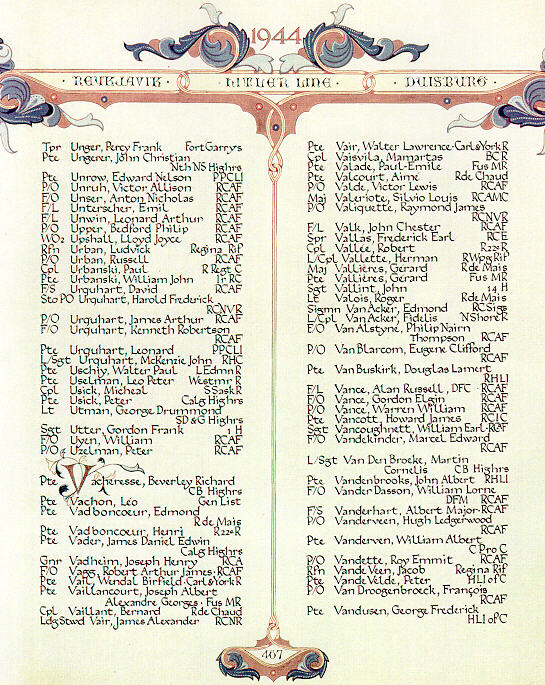 1944
· REYKJAVIK · HITLER LINE · DUISBURG ·
Tpr Unger, Percy Frank Fort Garrys
Pte Ungerer, John Christian
Nth NS Highrs
Pte Unrow, Edward Nelson PPCLI
P/O Unruh, Victor Allison RCAF
F/O Unser, Anton Nicholas RCAF
F/L Unterseher, Emil RCAF
F/L Unwin, Leonard Arthur RCAF
P/O Upper, Bedford Philip RCAF
WO2 Upshall, Lloyd Joyce RCAF
Rfn Urban, Ludvick Regina Rif
P/O Urban, Russell RCAF
Cpl Urbanski, Paul R Regt C
Pte Urbanski, William John Ir RC
F/S Urquhart, David RCAF
Sto PO Urquhart, Harold Frederick
RCNVR
P/O Urquhart, James Arthur RCAF
F/O Urquhart, Kenneth Robertson
RCAF
Pte Urquhart, Leonard PPCLI
L/Sgt Urquhart, McKenzie John RHC
Pte Uschiy, Walter Paul L Edmn R
Pte Uselman, Leo Peter Westmr R
Cpl Usick, Micheal S Sask R
Pte Usick, Peter Calg Highrs
Lt Utman, George Drummond
SD & G Highrs
Sgt Utter, Gordon Frank 1 H
F/O Uyen, William RCAF
P/O Uzelman, Peter RCAF
Pte Vacheresse, Beverley Richard
CB Highrs
Pte Vachon, Léo Gen List
Pte Vadboncœur, Edmond
R de Mais
Pte Vadboncœur, Henri R22eR
Pte Vader, James Daniel Edwin
Calg Highrs
Gnr Vadheim, Joseph Henry RCA
F/O Vagg, Robert Arthur James · RCAF
Pte Vail, Wendal Birfield · Carl & York R
Pte Vaillancourt, Joseph Albert
Alexandre Georges · Fus MR
Cpl Vaillant, Bernard R de Chaud
Ldg Stwd Vair, James Alexander RCNR
Pte Vair, Walter Lawrence · Carl & York R
Cpl Vaisvila, Mamartas BCR
Pte Valade, Paul-Emile Fus MR
Pte Valcourt, Aimé R de Chaud
P/O Valde, Victor Lewis RCAF
Maj Valeriote, Silvio Louis RCAMC
P/O Valiquette, Raymond James
RCNVR
F/L Valk, John Chester RCAF
Spr Vallas, Frederick Earl RCE
Cpl Vallée, Robert R22eR
L/Cpl Vallette, Herman R Wpg Rif
Maj Vallières, Gérard R de Mais
Pte Vallières, Gérard Fus MR
Sgt Vallint, John 14 H
Lt Valois, Roger R de Mais
Sigmn Van Acker, Edmond RC Sigs
L/Cpl Van Acker, Fidelis N Shore R
F/O Van Alstyne, Philip Nairn
Thompson RCAF
P/O Van Blarcom, Eugene Clifford
RCAF
Pte Van Buskirk, Douglas Lamert
RHLI
F/L Vance, Alan Russell, DFC RCAF
F/O Vance, Gordon Elgin RCAF
P/O Vance, Warren William RCAF
Pte Vancott, Howard James RCIC
Sgt Vancoughnett, William Earl · RCAF
F/O Vandekinder, Marcel Edward
RCAF
L/Sgt Van Den Broeke, Martin
Cornelis CB Highrs
Pte Vandenbrooks, John Albert RHLI
F/O Vander Dasson, William Lorne
DFM RCAF
F/S Vanderhart, Albert Major · RCAF
P/O Vanderveen, Hugh Ledgerwood
RCAF
Pte Vanderven, William Albert
C Pro C
P/O Vandette, Roy Emmit RCAF
Rfn Vande Veen, Jacob Regina Rif
Pte Vande Velde, Peter HLI of C
P/O Van Droogenbroeck, François
RCAF
Pte Vandusen, George Frederick
HLI of C
467